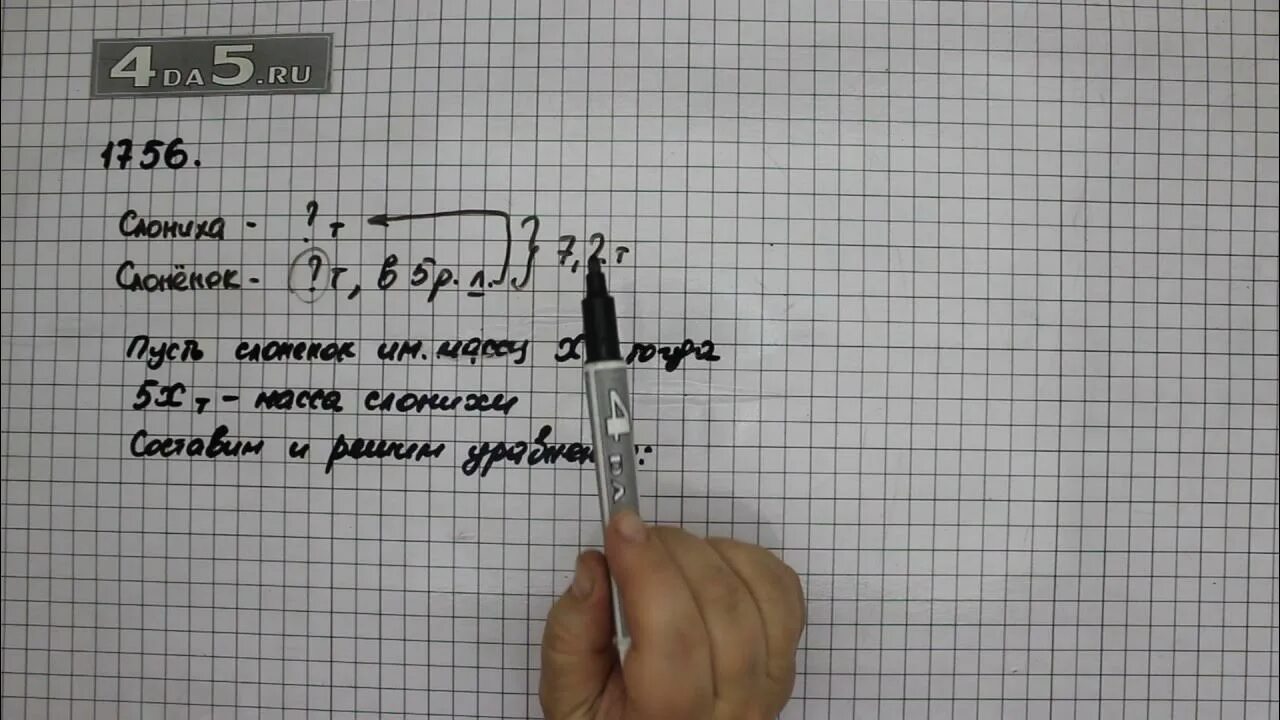 4DA5.RU
1756.
Слониха - ? т
Слонёнок - ? т, в 5 р. л. } 7,2 т
Пусть слоненок им. массу х тогда
5х т - масса слонихи
Составим и решим
4 DA